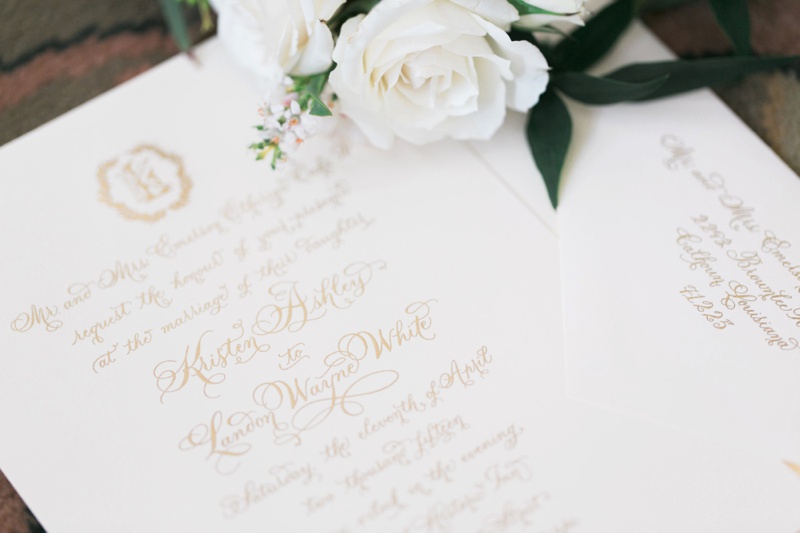 Mr. and Mrs. Emerson
request the honour of your presence
at the marriage of their daughter
Kristen Ashley
to
Landon Wayne White
Saturday, the eleventh of April
two thousand fifteen
o'clock in the evening
Inn
Mr. and Mrs.
Calhoun, Louisiana
71225